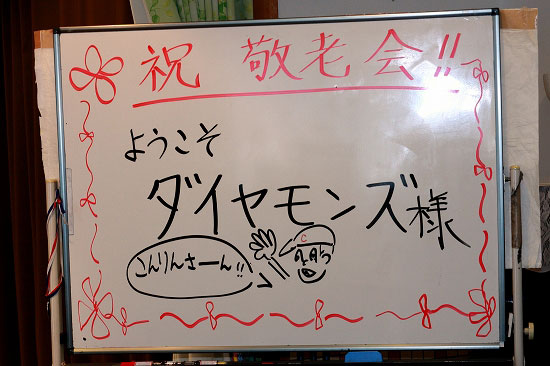 祝 敬老会!!
ようこそ
ダイヤモンズ様
こんりんさーん!!
C